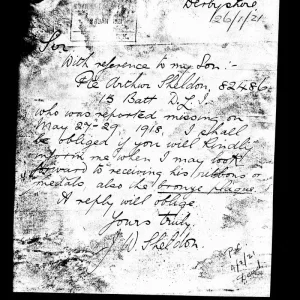 JAN 1921
Derbyshire
26/1/21
Sir
With reference to my Son:-
Pte Arthur Sheldon, 82486
15 Batt D.L.I.
who was reported missing on
May 27-29, 1918, I shall
be obliged if you will kindly
inform me when I may look
forward to receiving his ribbons or
medals also the bronze plaque.
A reply will oblige.
Yours truly.
J W Sheldon.